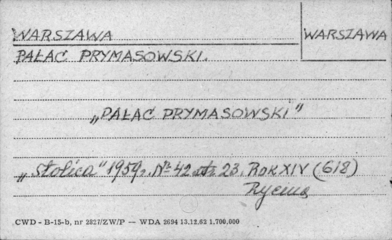 WARSZAWA
WARSZAWA
PAŁAC PRYMASOWSKI.
„PAŁAC PRYMASOWSKI"
„Stolica" 1959r. Nr 42 str. 23. Rok XIV (618)
Rycina
CWD - B-15-b, nr 2827/ZW/P — WDA 2694 13.12.62 1,700,000